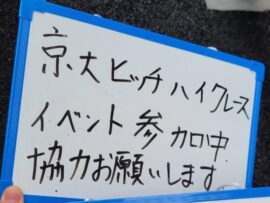 京大ヒッチハイクレース
イベント参加中
協力お願いします